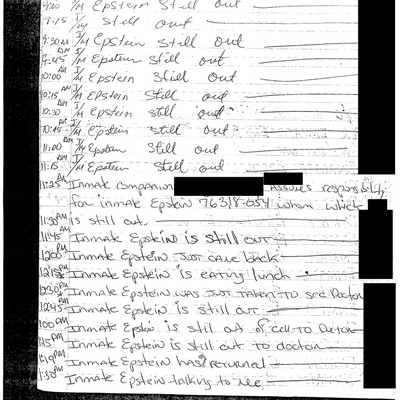 9:00 I/M Epstein still out
9:15 I/M still out
9:30 AM I/M Epstein still out
9:45 AM I/M Epstein still out
10:00 AM I/M Epstein still out
10:15 AM I/M Epstein still out
10:30 AM I/M Epstein still out
10:45 AM I/M Epstein still out
11:00 AM I/M Epstein still out
11:15 AM I/M Epstein still out
11:25 AM Inmate companion assumes responsibility
for inmate Epstein 76318-054 whom which
11:30 AM is still out.
11:45 AM Inmate Epstein is still out
12:00 PM Inmate Epstein just came back
12:15 PM Inmate Epstein is eating lunch
12:30 PM Inmate Epstein was just taken to see Doctor
12:45 PM Inmate Epstein is still out
1:00 PM Inmate Epstein is still out of cell to Doctor
1:15 PM Inmate Epstein is still out to doctor
1:19 PM Inmate Epstein has returned
1:30 PM Inmate Epstein talking to me